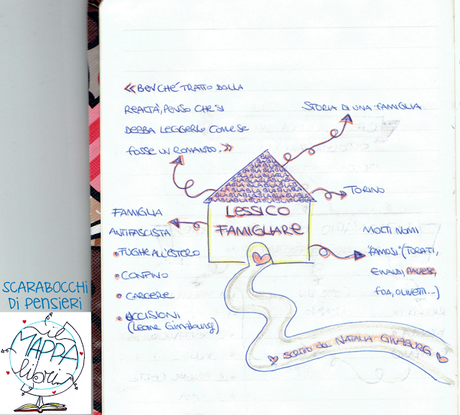 «BENCHÉ TRATTO DALLA
REALTÀ, PENSO CHE SI
DEBBA LEGGERLO COME SE
FOSSE UN ROMANZO.»
STORIA DI UNA FAMIGLIA
TORINO
LESSICO
FAMIGLIARE
FAMIGLIA
ANTIFASCISTA
• FUGHE ALL'ESTERO
• CONFINO
• CARCERE
• UCCISIONI
(Leone Ginzburg)
MOLTI NOMI
"FAMOSI" (TURATI,
EINAUDI, PAVESE,
FOA, OLIVETTI...)
SCRITTO DA NATALIA GINZBURG
SCARABOCCHI
DI PENSIERI
il
MAPPA
libri